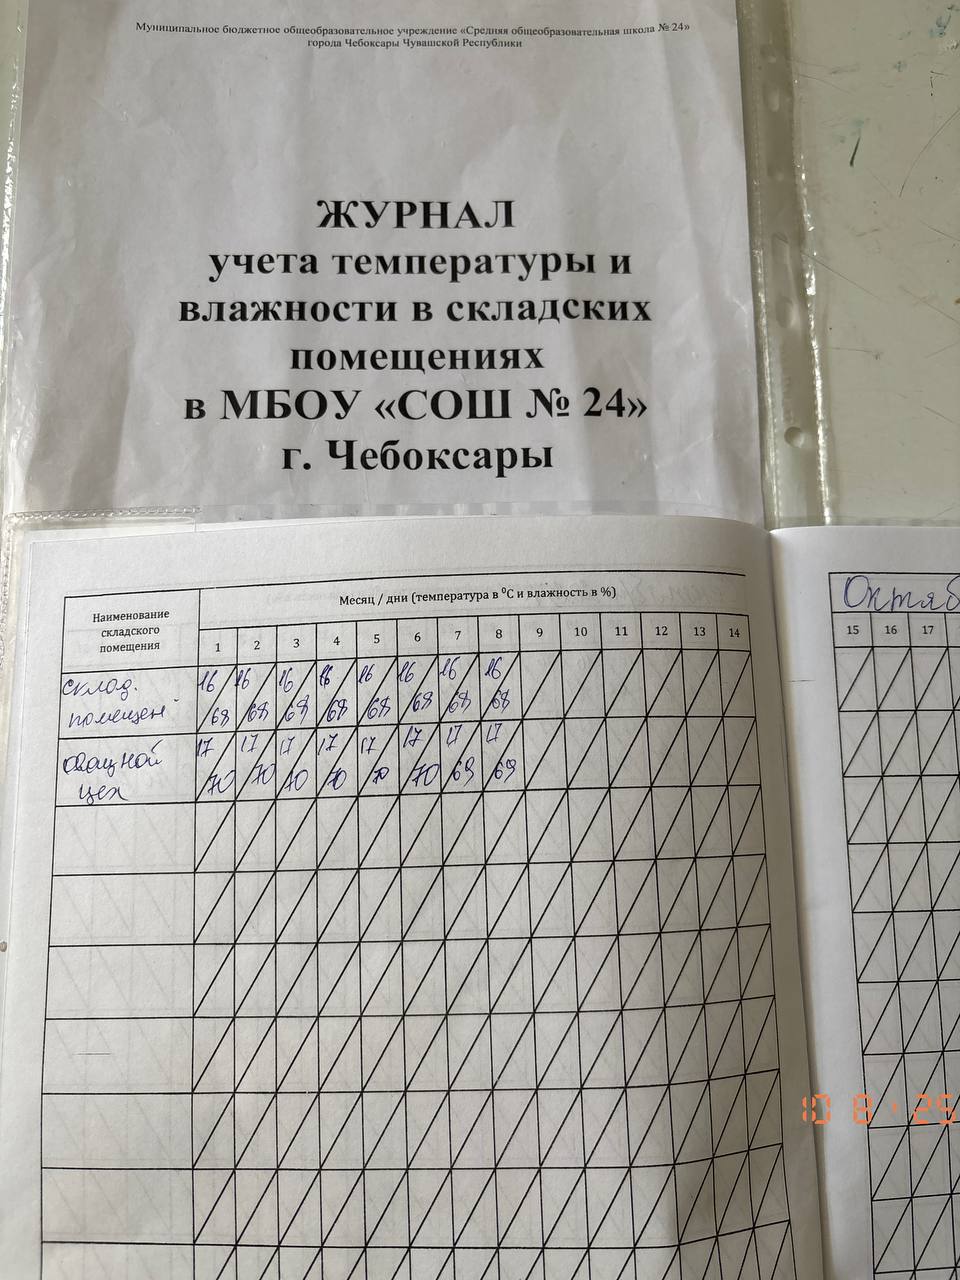 Муниципальное бюджетное общеобразовательное учреждение «Средняя общеобразовательная школа № 24»
города Чебоксары Чувашской Республики
ЖУРНАЛ
учета температуры и
влажности в складских
помещениях
в МБОУ «СОШ № 24»
г. Чебоксары
Наименование
складского
помещения
Месяц / дни (температура в ⁰С и влажность в %)
1 2 3 4 5 6 7 8 9 10 11 12 13 14
склад.
помещен
16 16 16 16 16 16 16 16
68 68 68 68 68 68 68 68
овощной
цех
17 17 17 17 17 17 17 17
70 70 70 70 70 70 69 69
Октяб
15 16 17
10 8 '25